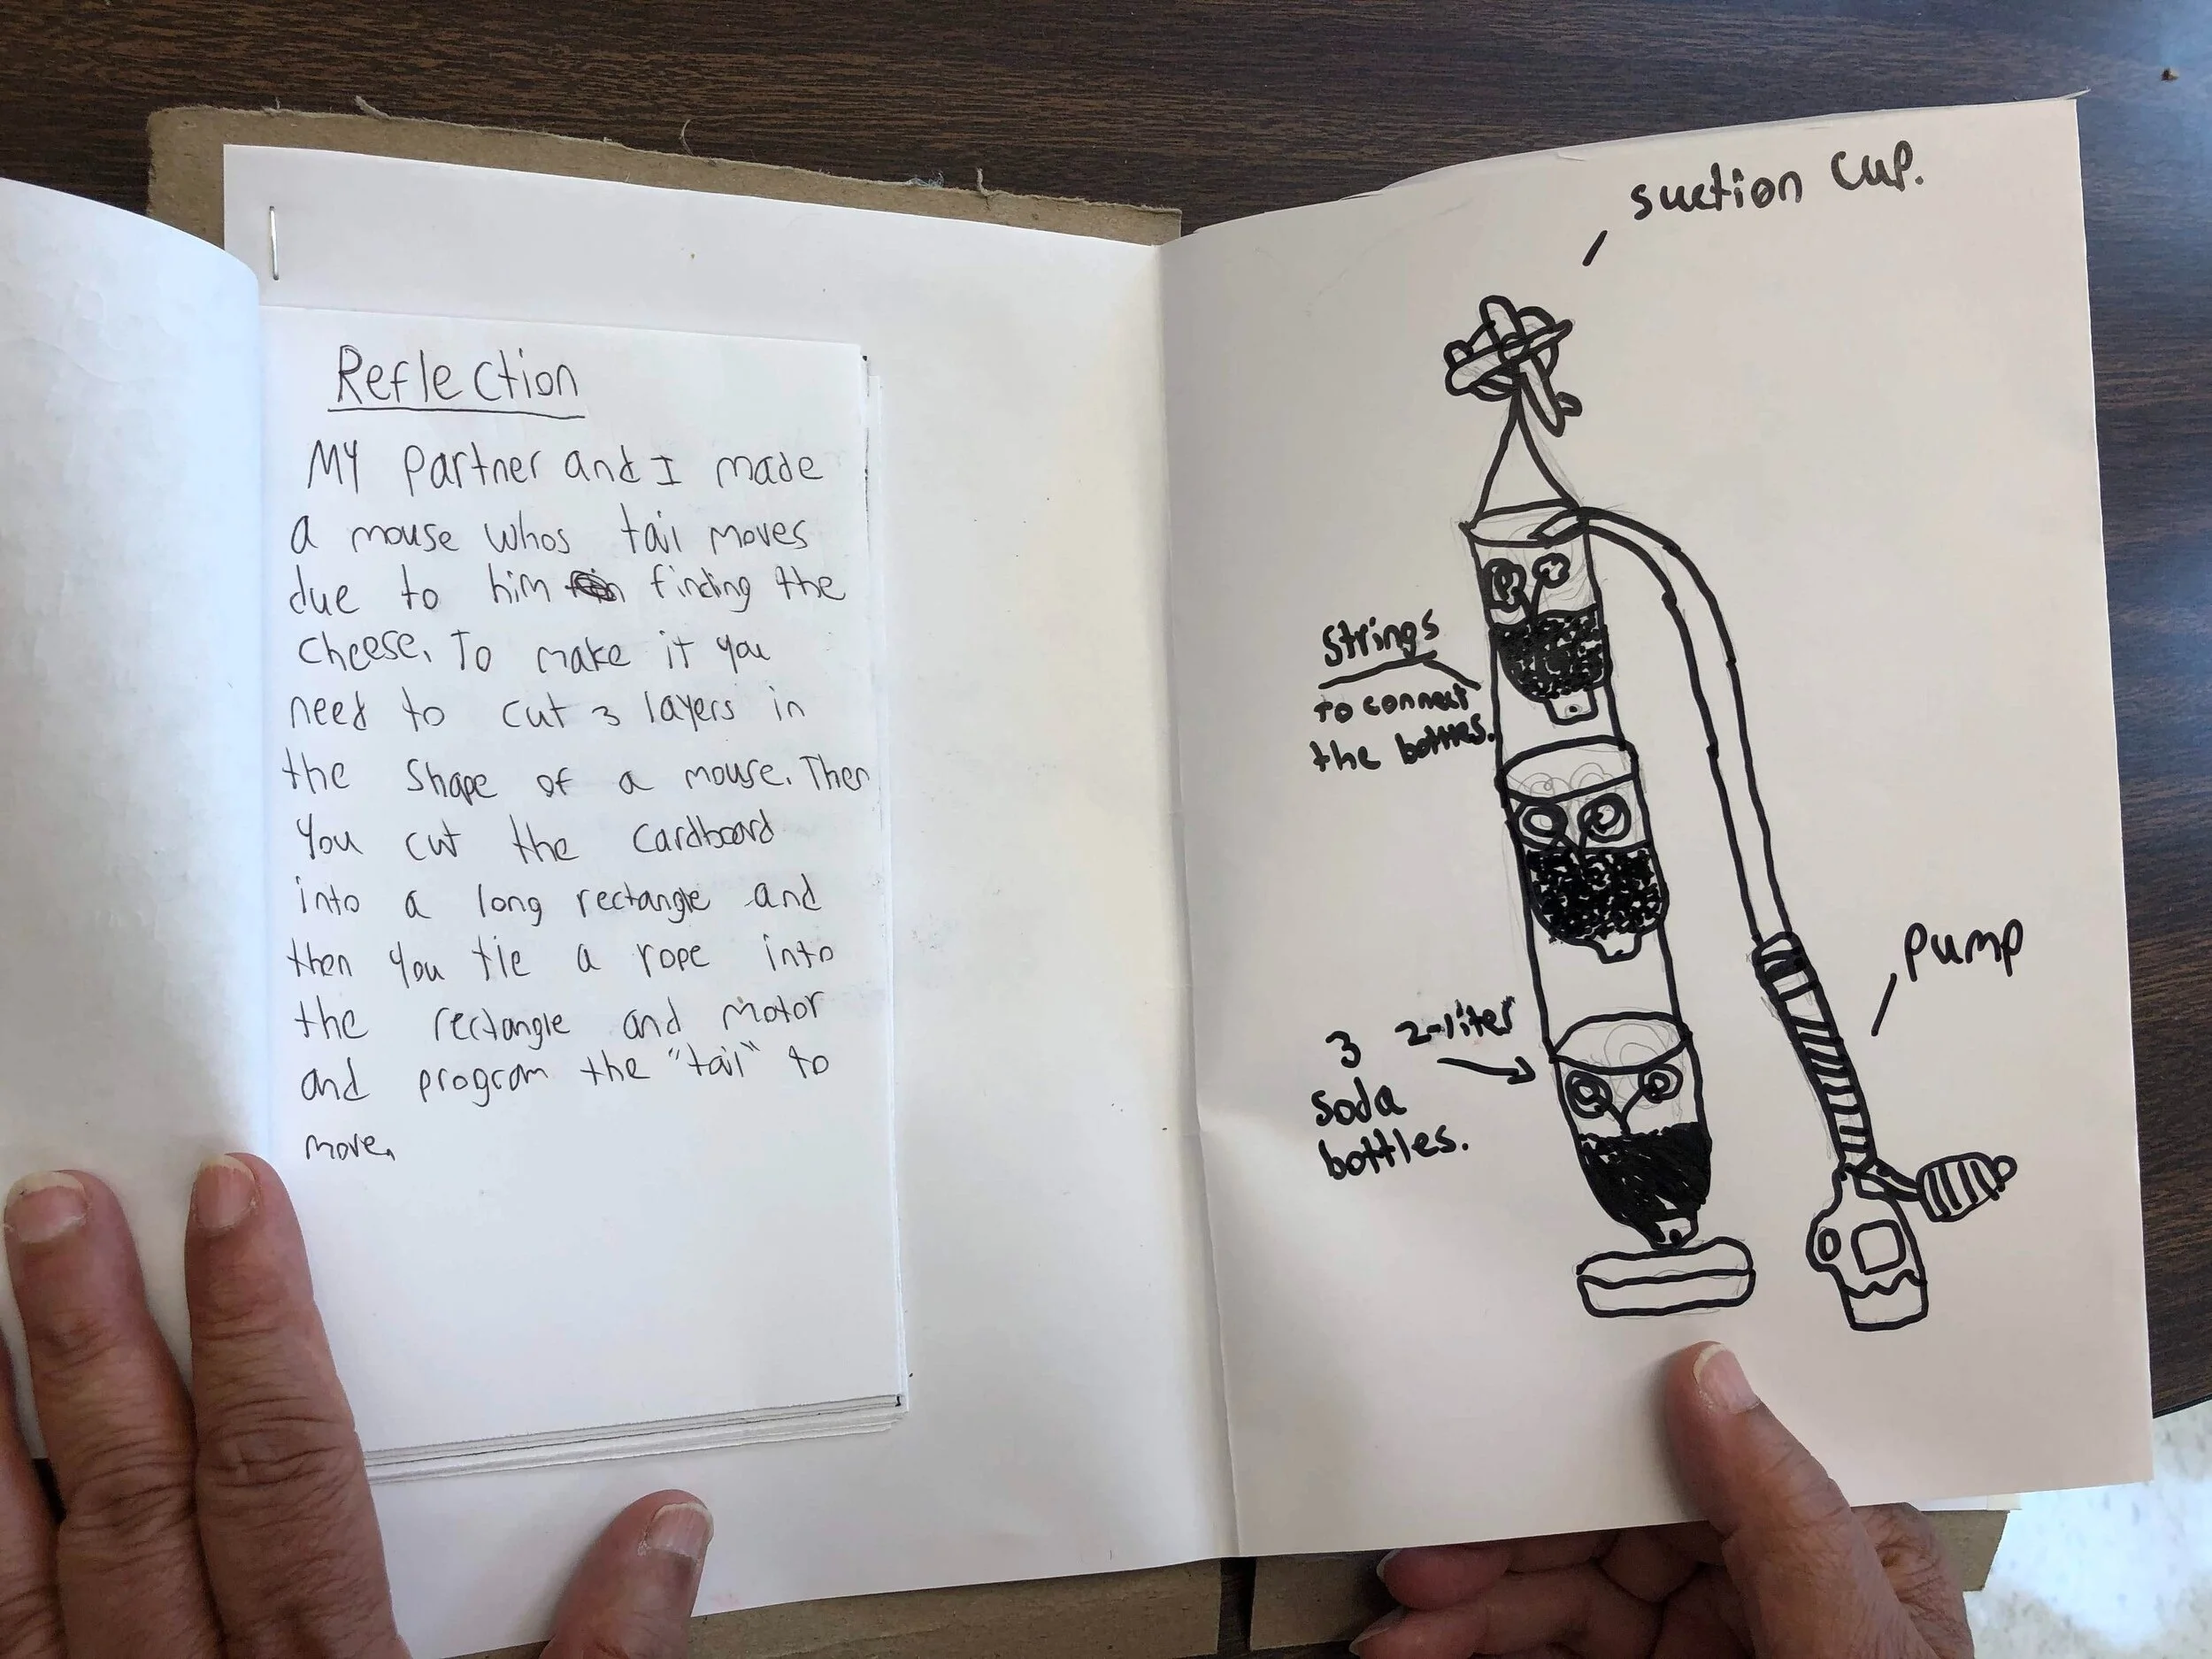 Reflection
MY partner and I made
a mouse whos tail moves
due to him finding the
cheese. To make it you
need to cut 3 layers in
the shape of a mouse. Then
you cut the cardboard
into a long rectangle and
then you tie a rope into
the rectangle and motor
and program the "tail" to
move.
suction cup.
strings
to connect
the bottles.
pump
3 2-liter
soda
bottles.